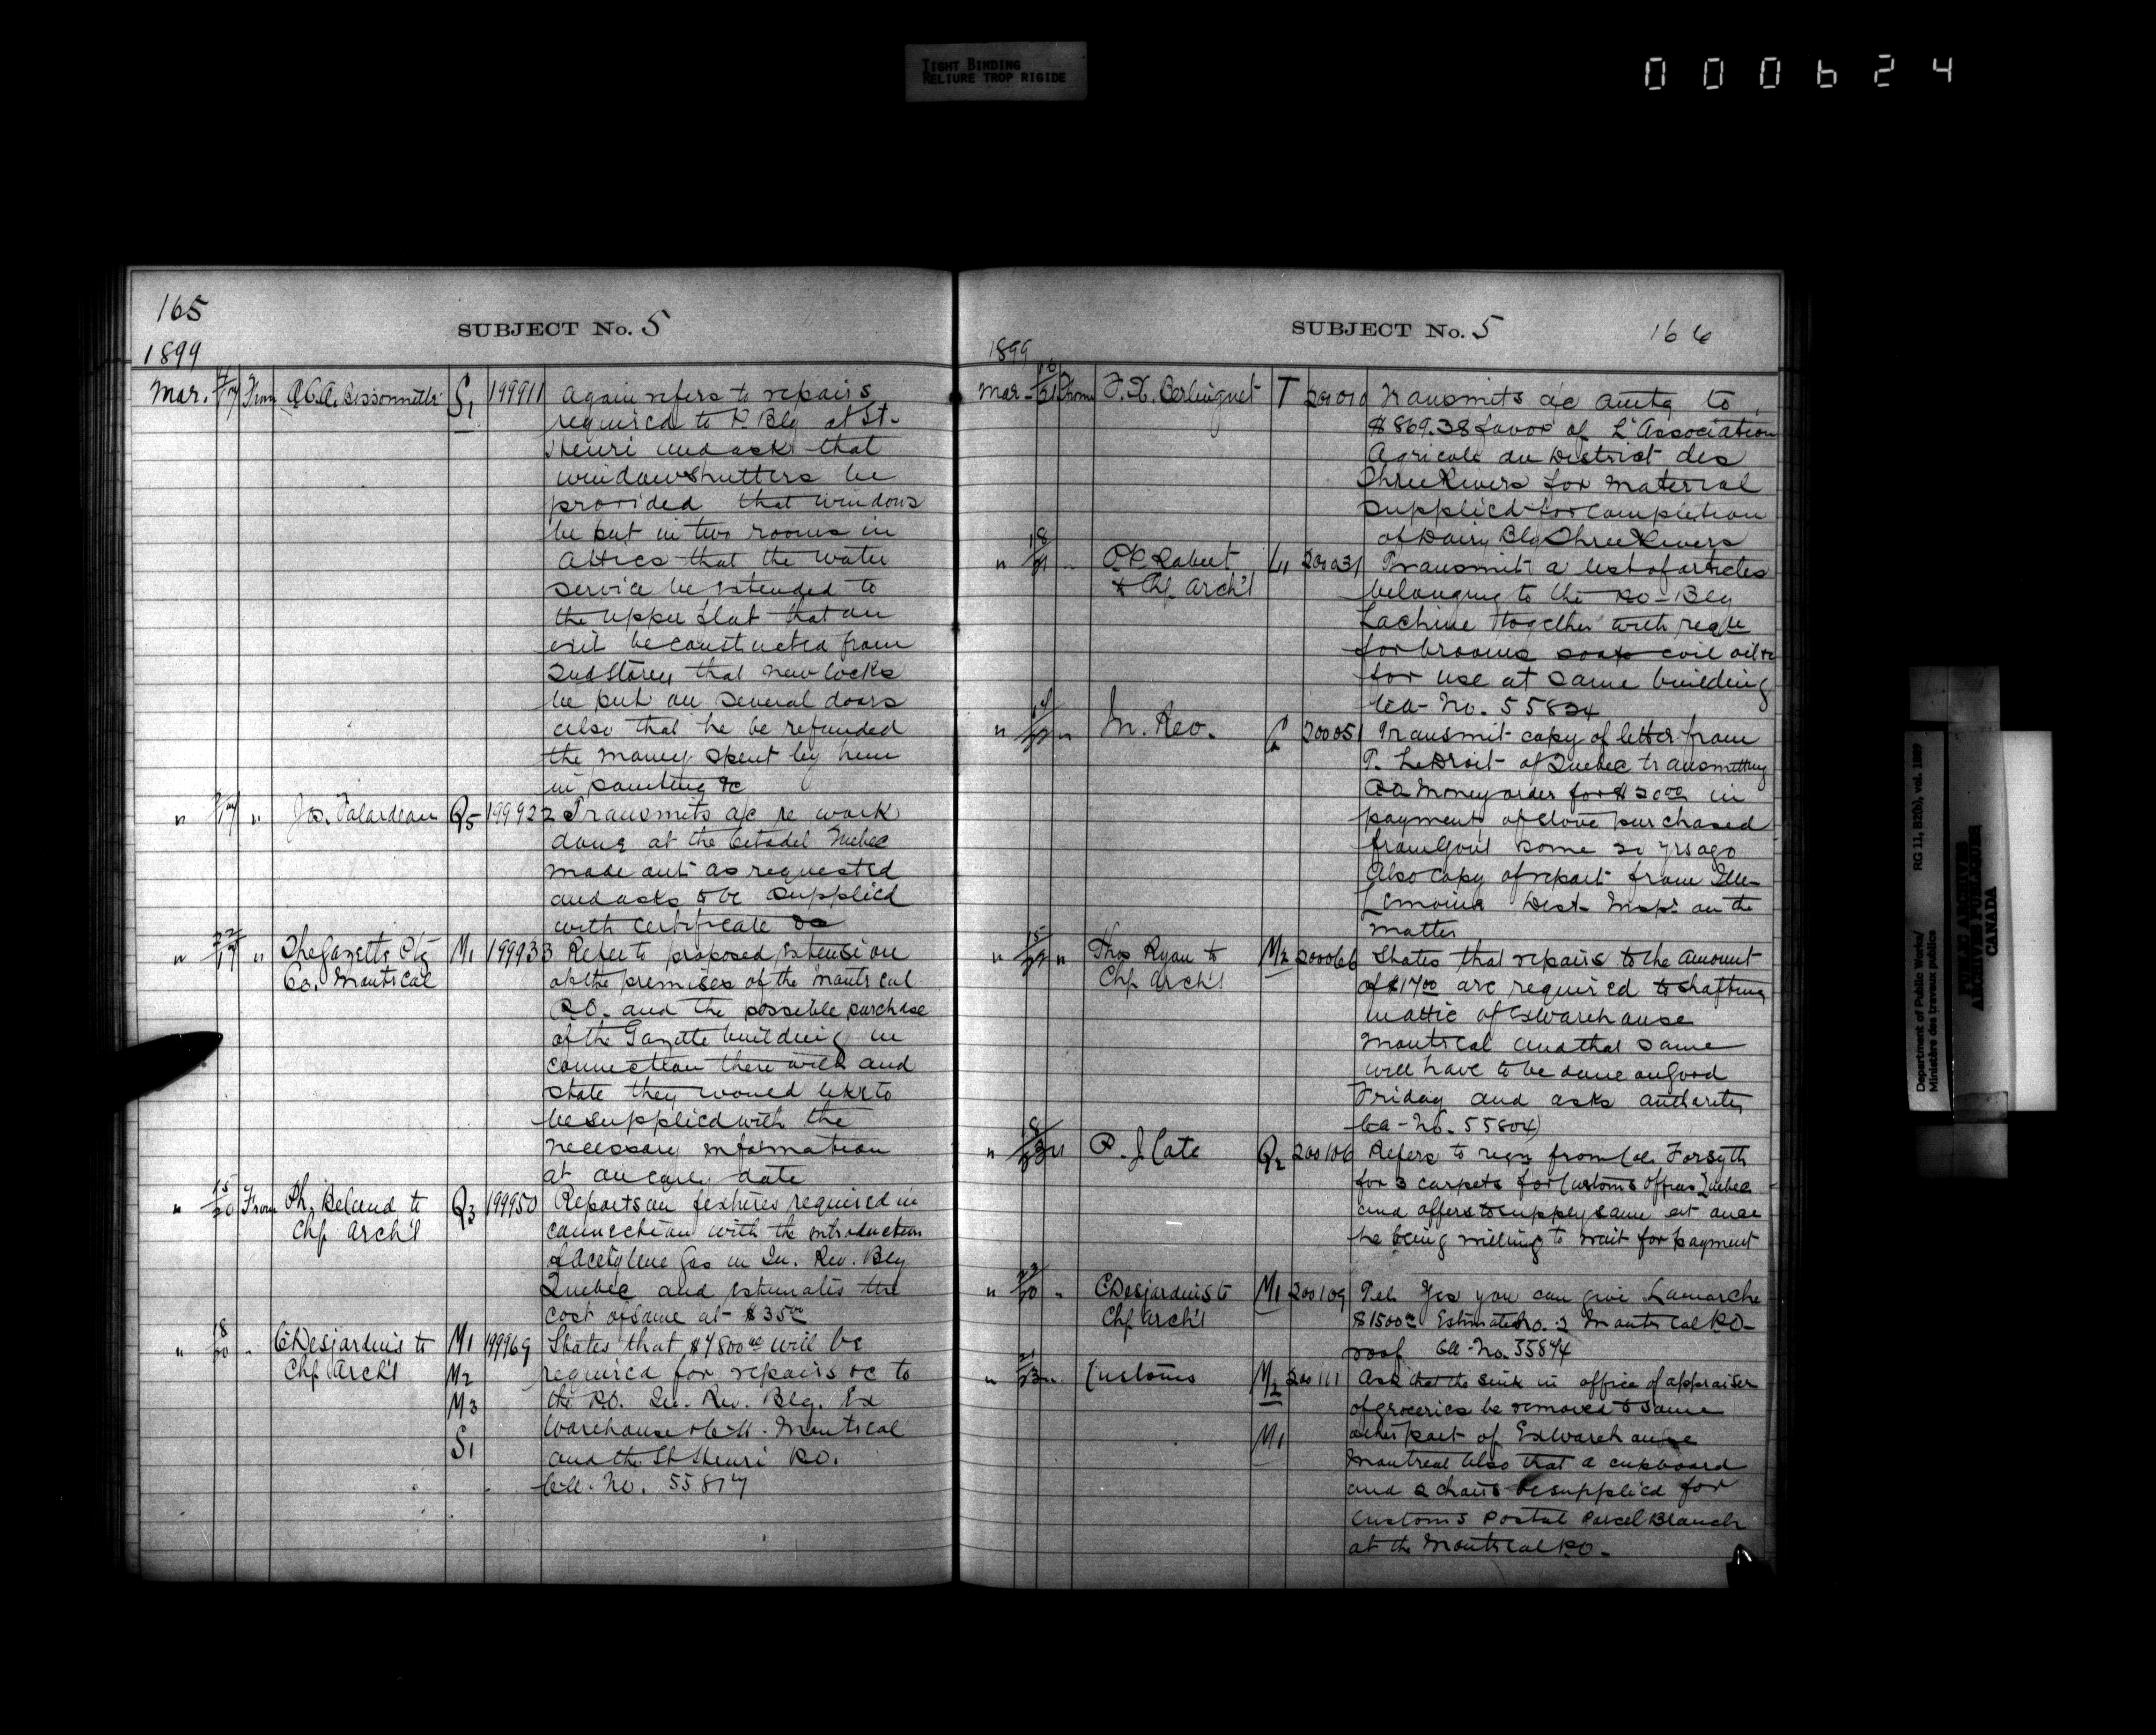 TIGHT BINDING
RELIURE TROP RIGIDE
000624
165
SUBJECT No. 5
1899
Mar. From A.C.A. Bissonnette S1 199911 Again refers to repairs
required to P. Blg at St.
Henri and asks that
window shutters be
provided that windows
be put in two rooms in
Attics that the water
service be extended to
the upper flat that an
exit be constructed from
2nd Storey that new locks
be put on several doors
also that he be refunded
the money spent by him
in painting &c
" " Jos. Falardeau Q5 199922 Transmits a/c re work
done at the Citadel Quebec
made out as requested
and asks to be supplied
with certificate &c
" 22/17 " The Gazette Ptg M1 199933 Refer to proposed extension
Co. Montreal of the premises of the Montreal
P.O. and the possible purchase
of the Gazette building in
connection there with and
state they would like to
be supplied with the
necessary information
at an early date
" 15/20 From Ph. Beland to Q3 199950 Reports on fixtures required in
Chf Arch't connection with the introduction
of Acetylene Gas in In. Rev. Blg
Quebec and estimates the
cost of same at $35.00
" 18/20 " C Desjardins to M1 199969 States that $4800.00 will be
Chf Arch't M2 required for repairs &c to
M3 the P.O. In. Rev. Blg. Ex
Warehouse C.H. Montreal
S1 and the St Henri P.O.
Ca. No. 55817
SUBJECT No. 5
166
1899
Mar 10/21 From F. X. Berlinguet T 200010 Transmits a/c amtg to
$869.38 favor of L'Association
Agricole du District des
Three Rivers for material
supplied for completion
of Dairy Blg Three Rivers
" 18/21 " O.P. Robert L1 200031 Transmit a list of articles
to Chf Arch't belonging to the P.O. Blg
Lachine together with reqn
for brooms soap coil oil &c
for use at same building
Ca- No. 55824
" " In. Rev. Q 200051 Transmit copy of letter from
P. LeDroit of Quebec transmitting
P.O. Money order for $20.00 in
payment of stove purchased
from Gov't some 20 yrs ago
Also copy of report from
Lemoine Dist Insp. on the
matter
" 15 " Thos Ryan to M2 200066 States that repairs to the amount
Chf Arch't of $17.00 are required to shafting
in attic of Ex Warehouse
Montreal and that same
will have to be done on Good
Friday and asks authority
Ca - No. 55804
" 18/23 " P. J. Cote Q2 200106 Refers to reqn from Forsyth
for 3 carpets for Customs Offices Quebec
and offers to supply same at once
he being willing to wait for payment
" " C Desjardins to M1 200109 Tel. Yes you can give Lamarche
Chf Arch't $1500.00 Estimate No. 2 Montreal P.O.
roof Ca- No. 55874
" 21/23 " Customs M2 200111 Ask that the sink in office of appraiser
of groceries be removed to some
M1 other part of Ex Warehouse
Montreal Also that a cupboard
and 2 chairs be supplied for
Customs Postal Parcel Branch
at the Montreal P.O.
Department of Public Works/ RG 11, B2(b), vol. 1889
Ministère des travaux publics
PUBLIC ARCHIVES
ARCHIVES PUBLIQUES
CANADA